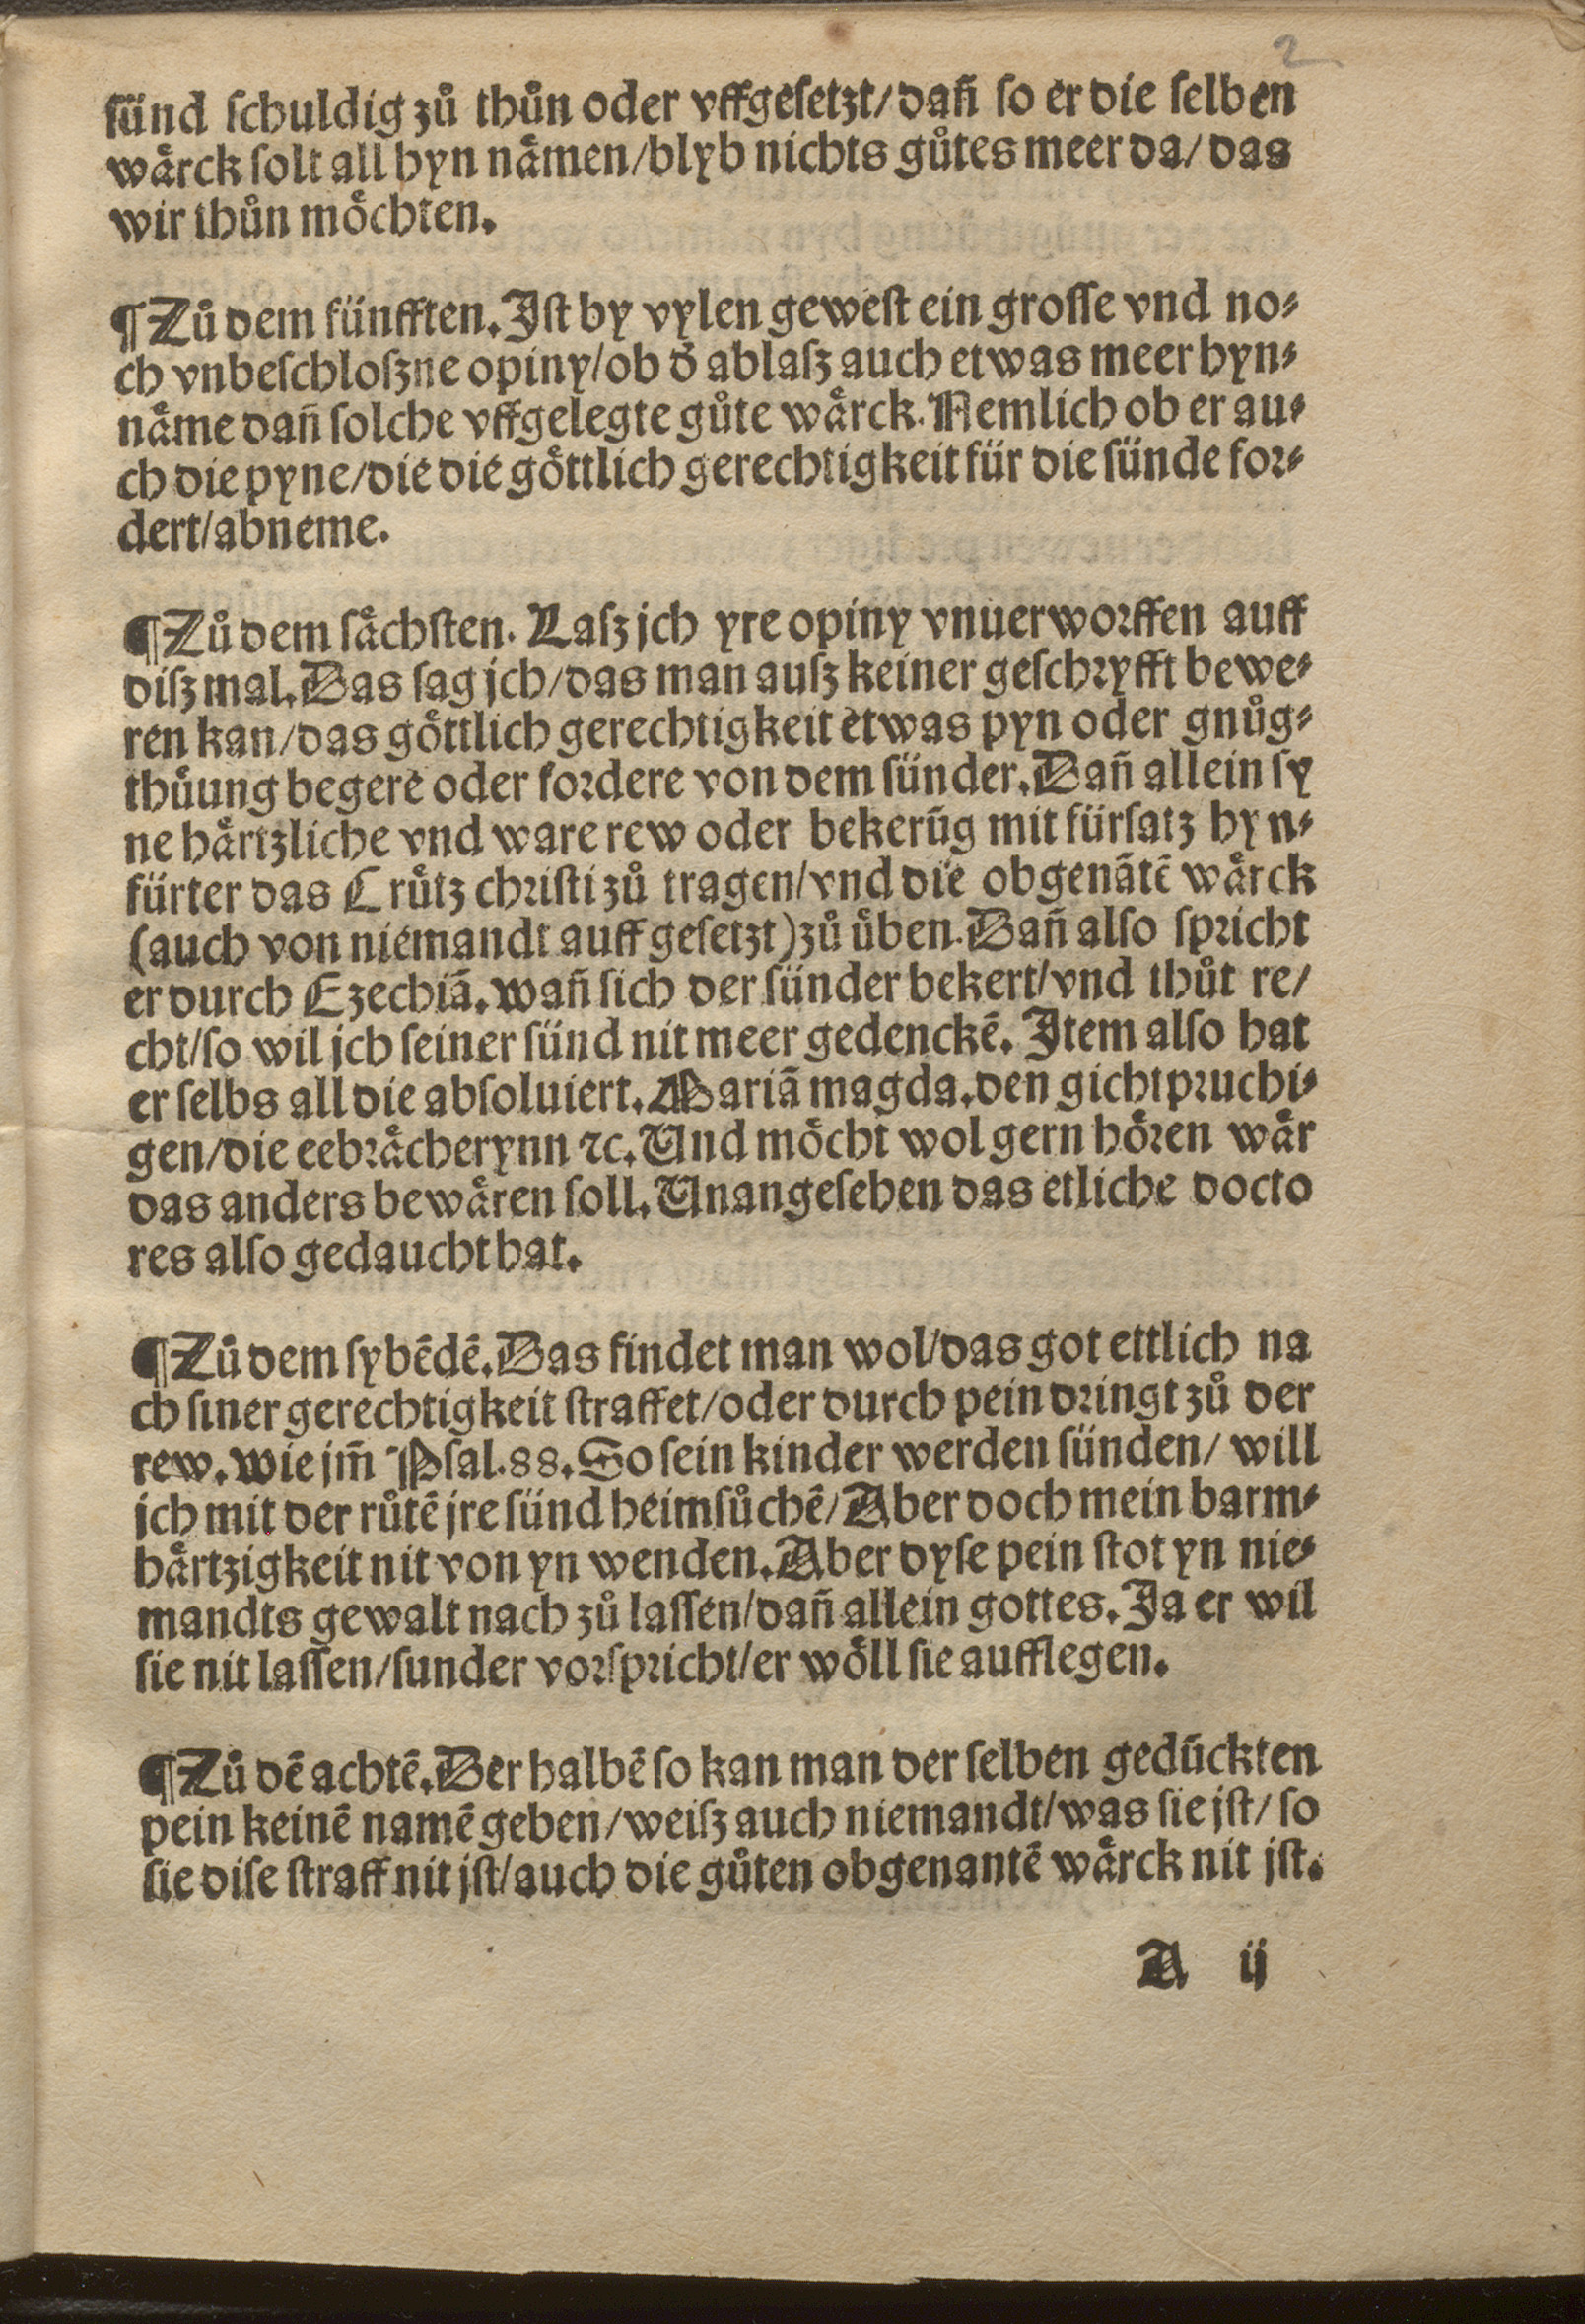 2
sünd schuldig zů thůn oder vffgesetzt/ dañ so er die selben
wårck solt all hyn nåmen/blyb nichts gůtes meer da/ das
wir thůn möchten.
¶ Zů dem fünfften. Ist by vylen gewest ein grosse vnd no⸗
ch vnbeschloszne opiny/ob d̄ ablasz auch etwas meer hyn⸗
nåme dañ solche vffgelegte gůte wårck. Nemlich ob er au⸗
ch die pyne/die die göttlich gerechtigkeit für die sünde for⸗
dert/abneme.
¶ Zů dem såchsten. Lasz jch yre opiny vnuerworffen auff
disz mal. Das sag jch/das man ausz keiner geschryfft bewe⸗
ren kan/das göttlich gerechtigkeit etwas pyn oder gnůg⸗
thůung begere oder fordere von dem sünder. Dañ allein sy
ne hårtzliche vnd ware rew oder bekerūg mit fürsatz hyn⸗
fürter das Crütz christi zů tragen/vnd die obgenātē wårck
(auch von niemandt auff gesetzt) zů üben. Dañ also spricht
er durch Ezechiā. wañ sich der sünder bekert/vnd thůt re/
cht/so wil jch seiner sünd nit meer gedenckē. Item also hat
er selbs all die absoluiert. Mariā magda. den gichtpruchi⸗
gen/die eebråcherynn ⁊c. Und möcht wol gern hören wår
das anders bewåren soll. Unangesehen das etliche docto
res also gedaucht hat.
¶ Zů dem sybēdē. Das findet man wol/das got ettlich na
ch siner gerechtigkeit straffet/oder durch pein dringt zů der
rew. wie jm̄ Psal.88. So sein kinder werden sünden/ will
ich mit der růtē jre sünd heimsůchē/ Aber doch mein barm⸗
hårtzigkeit nit von yn wenden. Aber dyse pein stot yn nie⸗
mandts gewalt nach zů lassen/dañ allein gottes. Ja er wil
sie nit lassen/sunder vorspricht/er wöll sie aufflegen.
¶ Zů dē achtē. Der halbē so kan man der selben gedūckten
pein keinē namē geben/weisz auch niemandt/was sie jst/ so
sie dise straff nit jst/auch die gůten obgenantē wårck nit jst.
A ij